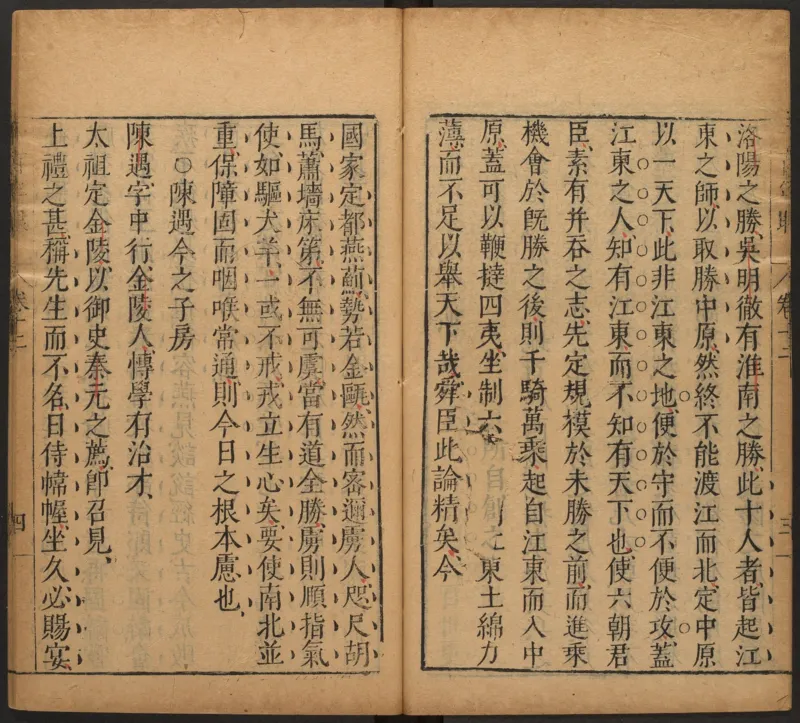 洛陽之勝吳明徹有淮南之勝此十人者皆起江
東之師以取勝中原然終不能渡江而北定中原
以一天下此非江東之地便於守而不便於攻蓋
江東之人知有江東而不知有天下也使六朝君
臣素有并吞之志先定規模於未勝之前而進乘
機會於旣勝之後則千騎萬乘起自江東而入中
原蓋可以鞭撻四夷坐制六 東土綿力
薄而不足以舉天下哉舜臣此論精矣今
三
國家定都燕薊勢若金甌然而密邇虜人咫尺胡
馬蕭墻床第不無可虞當有道全勝虜則順指氣
使如驅犬羊一或不戒戎立生心矣要使南北並
重保障固而咽喉常通則今日之根本慮也
〇陳遇今之子房
陳遇字中行金陵人博學有治才
太祖定金陵以御史秦元之薦卽召見
上禮之甚稱先生而不名日侍幃幄坐久必賜宴
四